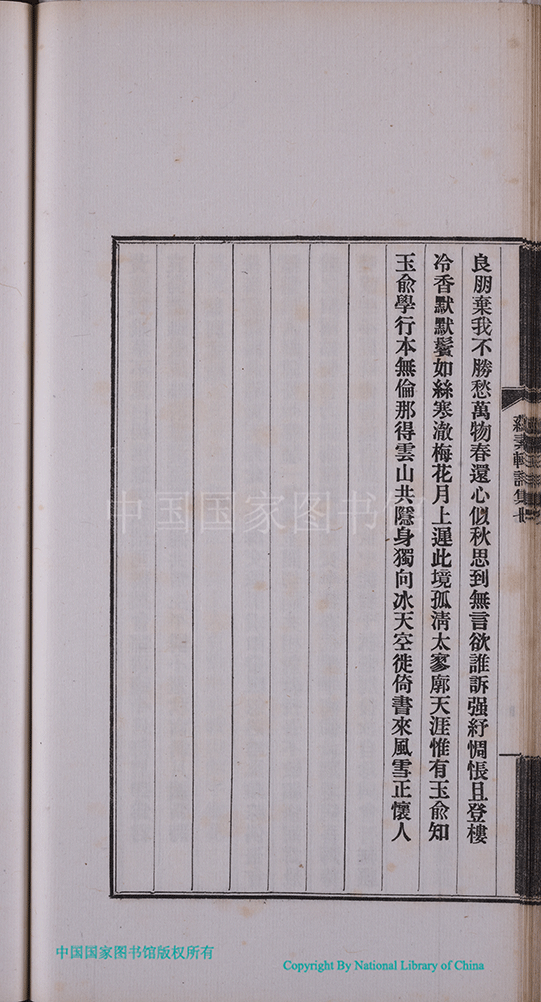 良朋棄我不勝愁萬物春還心似秋思到無言欲誰訴强紓惆悵且登樓
冷香默默鬢如絲寒澈梅花月上遲此境孤清太寥廓天涯惟有玉俞知
玉俞學行本無倫那得雲山共隱身獨向冰天空徙倚書來風雪正懷人
中国国家图书馆
中国国家图书馆版权所有
Copyright By National Library of China